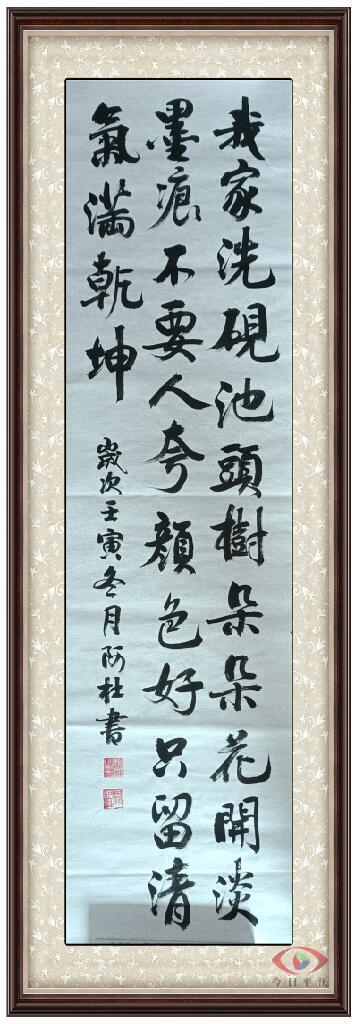 我家洗硯池頭樹朵朵花開淡
墨痕不要人夸顏色好只留清
氣滿乾坤
歲次壬寅冬月阿杜書
今日平江